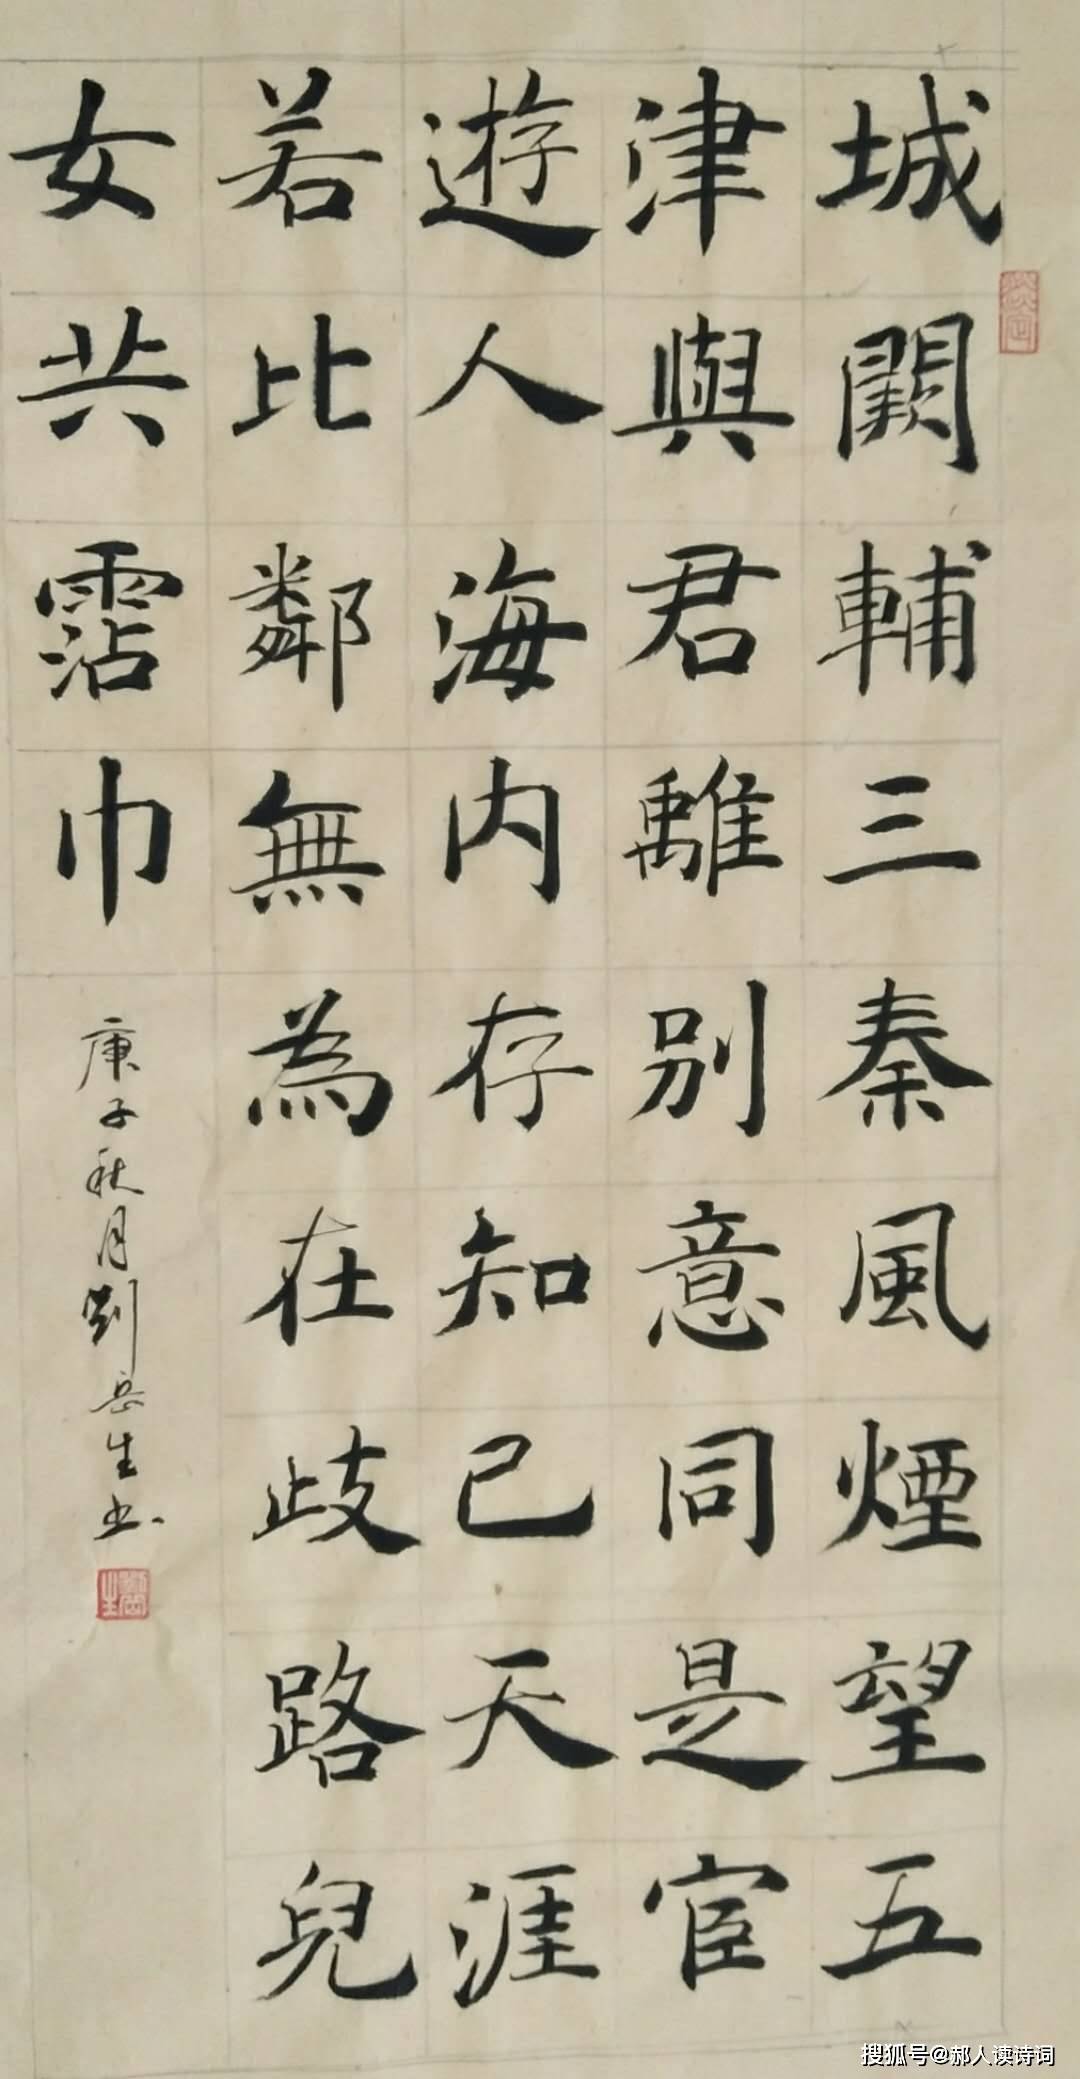 城闕輔三秦風煙望五
津與君離別意同是宦
遊人海内存知己天涯
若比鄰無為在歧路兒
女共霑巾
庚子秋月劉岳生书
搜狐号@郝人读诗词